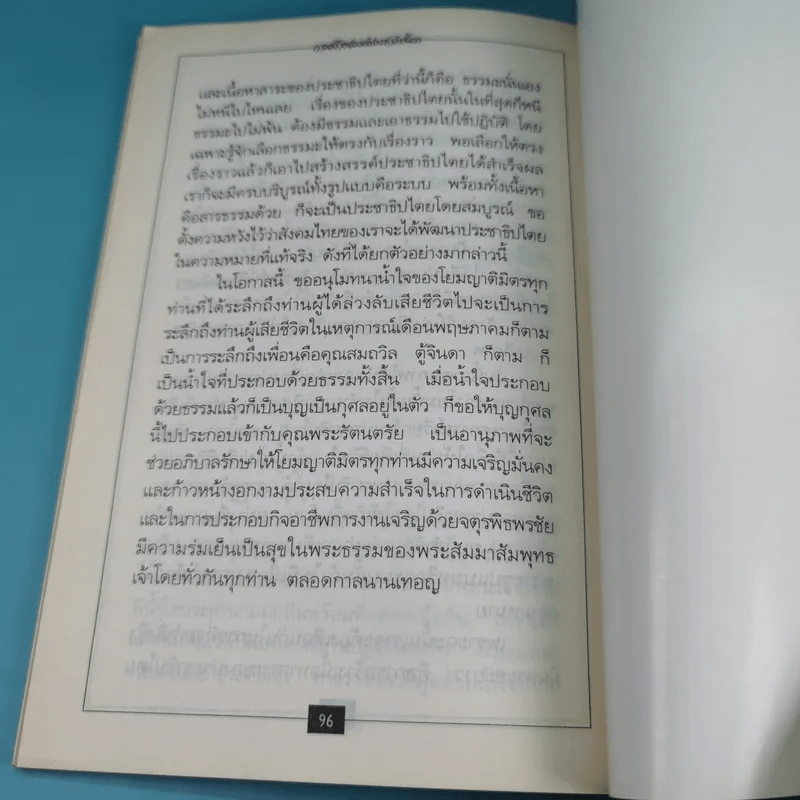 และเนื้อหาสาระของประชาธิปไตยที่ว่านี้ก็คือ ธรรมะนั่นเอง
ไม่หนีไปไหนเลย เรื่องของประชาธิปไตยนั้นในที่สุดก็หนี
ธรรมะไปไม่พ้น ต้องมีธรรมและเอาธรรมไปใช้ปฏิบัติ โดย
เฉพาะรู้จักเลือกธรรมะให้ตรงกับเรื่องราว พอเลือกให้ตรง
เรื่องราวแล้วก็เอาไปสร้างสรรค์ประชาธิปไตยได้สำเร็จผล
เราก็จะมีครบบริบูรณ์ทั้งรูปแบบคือระบบ พร้อมทั้งเนื้อหา
คือสารธรรมด้วย ก็จะเป็นประชาธิปไตยโดยสมบูรณ์ ขอ
ตั้งความหวังไว้ว่าสังคมไทยของเราจะได้พัฒนาประชาธิปไตย
ในความหมายที่แท้จริง ดังที่ได้ยกตัวอย่างมากล่าวนี้
ในโอกาสนี้ ขออนุโมทนาน้ำใจของโยมญาติมิตรทุก
ท่านที่ได้ระลึกถึงท่านผู้ได้ล่วงลับเสียชีวิตไปจะเป็นการ
ระลึกถึงท่านผู้เสียชีวิตในเหตุการณ์เดือนพฤษภาคมก็ตาม
เป็นการระลึกถึงเพื่อนคือคุณสมถวิล ตู้จินดา ก็ตาม ก็
เป็นน้ำใจที่ประกอบด้วยธรรมทั้งสิ้น เมื่อน้ำใจประกอบ
ด้วยธรรมแล้วก็เป็นบุญเป็นกุศลอยู่ในตัว ก็ขอให้บุญกุศล
นี้ไปประกอบเข้ากับคุณพระรัตนตรัย เป็นอานุภาพที่จะ
ช่วยอภิบาลรักษาให้โยมญาติมิตรทุกท่านมีความเจริญมั่นคง
และก้าวหน้างอกงามประสบความสำเร็จในการดำเนินชีวิต
และในการประกอบกิจอาชีพการงานเจริญด้วยจตุรพิธพรชัย
มีความร่มเย็นเป็นสุขในพระธรรมของพระสัมมาสัมพุทธ
เจ้าโดยทั่วกันทุกท่าน ตลอดกาลนานเทอญ
96